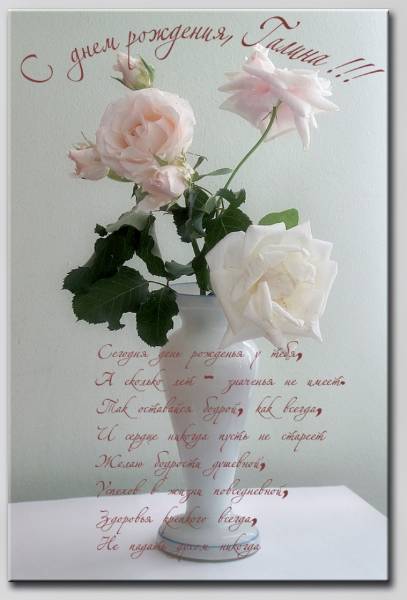 С днем рождения, Галина!!!
Сегодня день рожденья у тебя,
А сколько лет - значенья не имеет.
Так оставайся бодрой, как всегда,
И сердце никогда пусть не стареет
Желаю бодрости душевной,
Успехов в жизни повседневной,
Здоровья крепкого всегда,
Не падать духом никогда